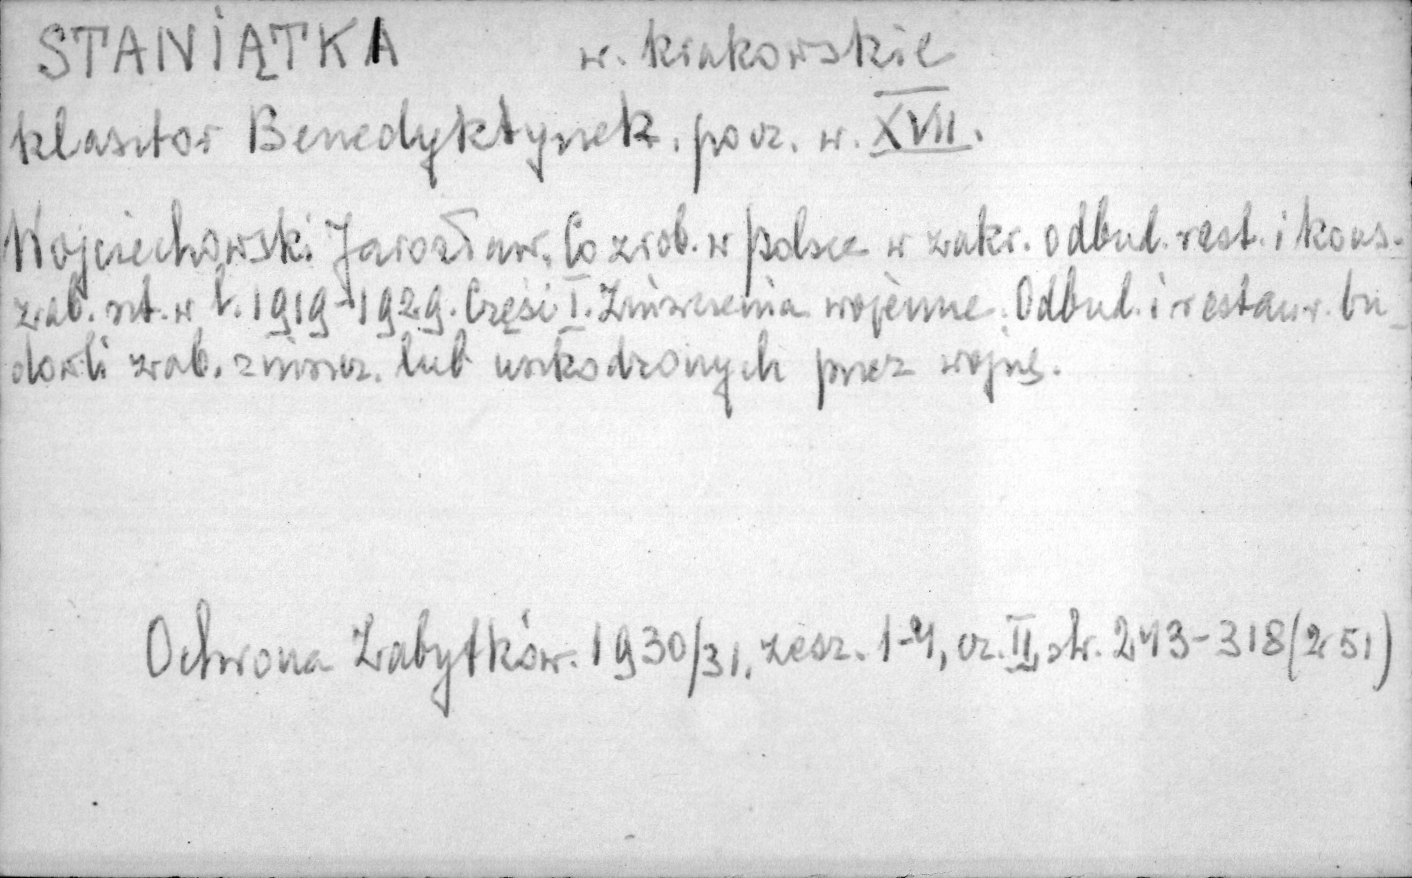 STANIĄTKA w. krakowskie
klasztor Benedyktynek. pocz. w. XVII.
Wojciechowski Jarosław. Co zrob. w Polsce w zakr. odbud. rest. i kons.
zab. szt. w l. 1919-1929. Część I. Zniszczenia wojenne. Odbud. i restaur. bu-
dowli zab. zniszcz. lub uszkodzonych przez wojnę.
Ochrona Zabytków. 1930/31, zesz. 1-4, cz. II, str. 243-318 (251)